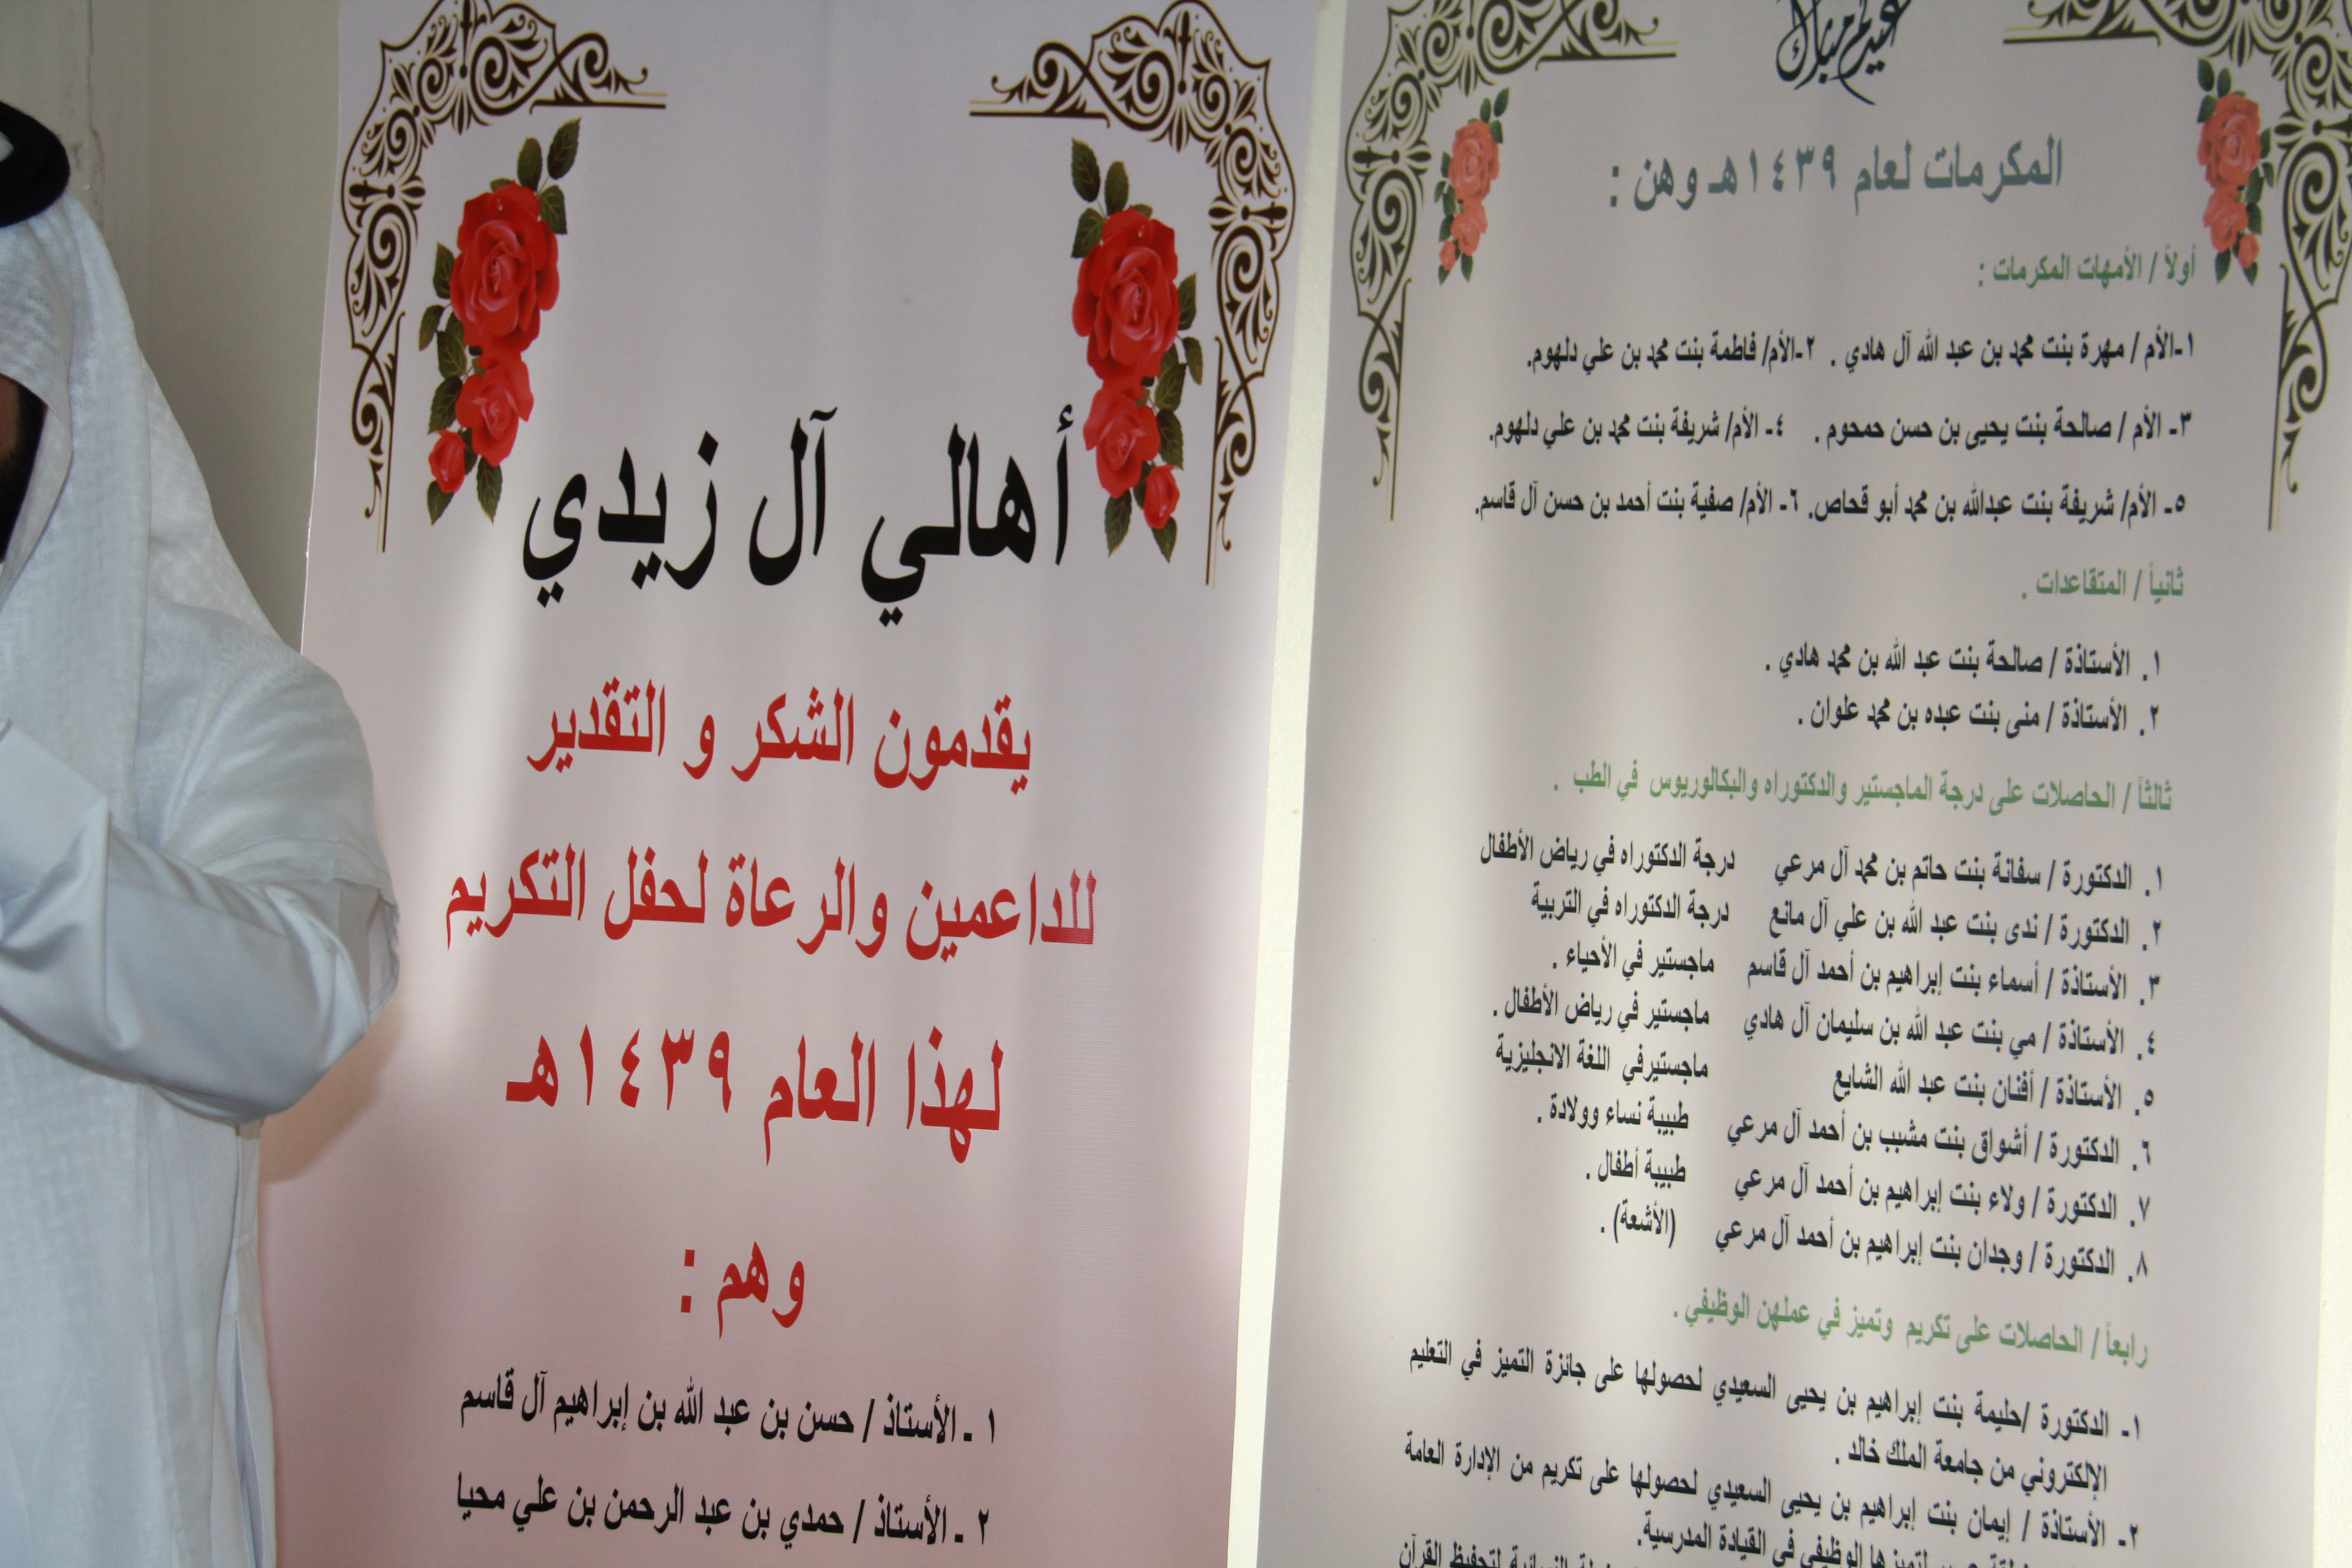 أهالي آل زيدي
يقدمون الشكر و التقدير
للداعمين والرعاة لحفل التكريم
لهذا العام ١٤٣٩هـ
وهم :
١ ـ الأستاذ / حسن بن عبد الله بن إبراهيم آل قاسم
٢ ـ الأستاذ / حمدي بن عبد الرحمن بن علي محيا
عيدكم مبارك
المكرمات لعام ١٤٣٩هـ وهن :
أولاً / الأمهات المكرمات :
١-الأم / مهرة بنت محمد بن عبد الله آل هادي . ٢-الأم/ فاطمة بنت محمد بن علي دلهوم.
٣- الأم / صالحة بنت يحيى بن حسن حمحوم . ٤- الأم/ شريفة بنت محمد بن علي دلهوم.
٥- الأم/ شريفة بنت عبدالله بن محمد أبو قحاص. ٦- الأم/ صفية بنت أحمد بن حسن آل قاسم.
ثانياً / المتقاعدات .
١. الأستاذة / صالحة بنت عبد الله بن محمد هادي .
٢. الأستاذة / منى بنت عبده بن محمد علوان .
ثالثاً / الحاصلات على درجة الماجستير والدكتوراه والبكالوريوس في الطب .
١. الدكتورة / سفانة بنت حاتم بن محمد آل مرعي درجة الدكتوراه في رياض الأطفال
٢. الدكتورة / ندى بنت عبد الله بن علي آل مانع درجة الدكتوراه في التربية
٣. الأستاذة / أسماء بنت إبراهيم بن أحمد آل قاسم ماجستير في الأحياء .
٤. الأستاذة / مي بنت عبد الله بن سليمان آل هادي ماجستير في رياض الأطفال .
٥. الأستاذة / أفنان بنت عبد الله الشايع ماجستيرفي اللغة الانجليزية
٦. الدكتورة / أشواق بنت مشبب بن أحمد آل مرعي طبيبة نساء وولادة .
٧. الدكتورة / ولاء بنت إبراهيم بن أحمد آل مرعي طبيبة أطفال .
٨. الدكتورة / وجدان بنت إبراهيم بن أحمد آل مرعي (الأشعة) .
رابعاً / الحاصلات على تكريم وتميز في عملهن الوظيفي .
١- الدكتورة /حليمة بنت إبراهيم بن يحيى السعيدي لحصولها على جائزة التميز في التعليم
الإلكتروني من جامعة الملك خالد .
٢- الأستاذة / إيمان بنت إبراهيم بن يحيى السعيدي لحصولها على تكريم من الإدارة العامة
لتميزها الوظيفي في القيادة المدرسية.
النسائية لتحفيظ القرآن